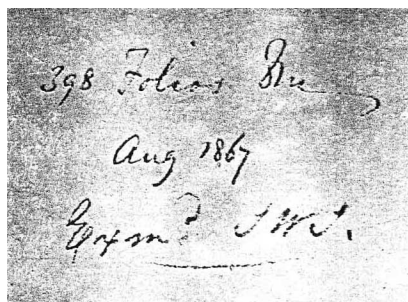 398 Folios
Aug 1867
Exm^d J W S.